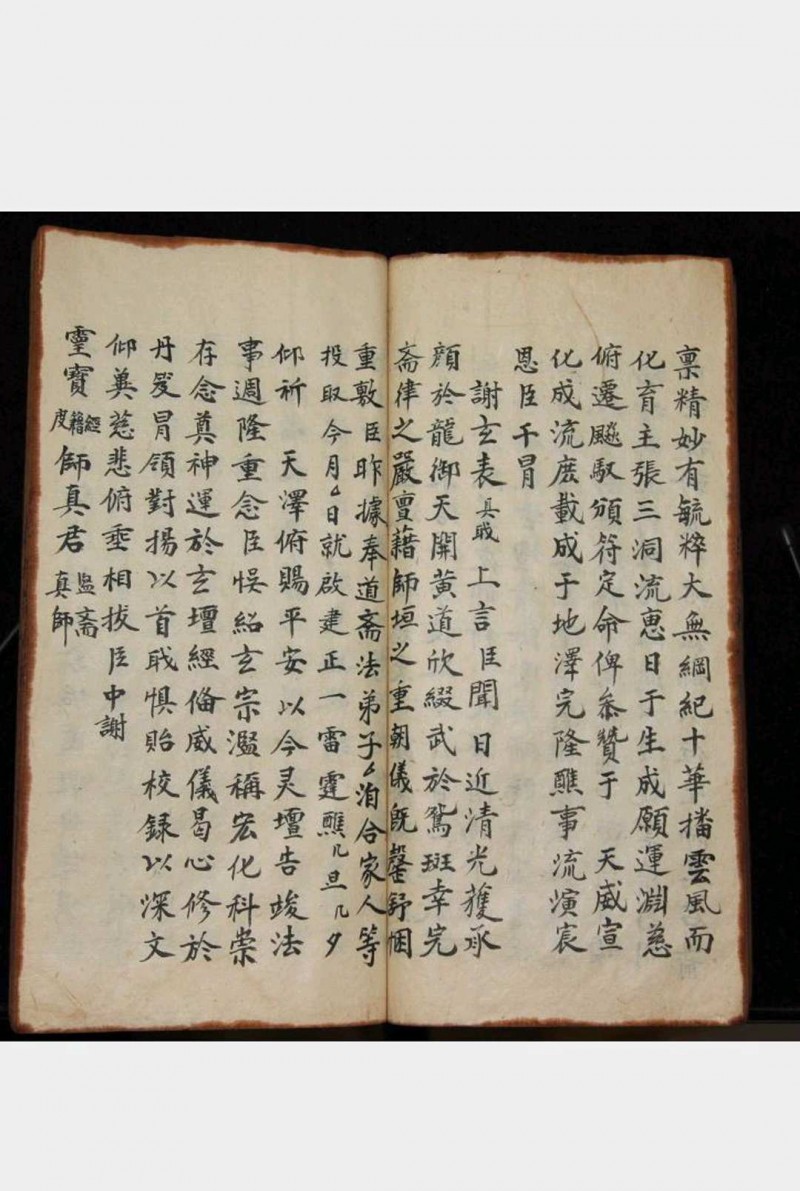 禀精妙有毓粹大無綱紀十華播雲風而
化育主張三洞流恵日于生成願運淵慈
俯遷飈馭頒符定命俾叅贊于 天威宣
化成流庶載成于地澤完隆醮事流演宸
恩臣干冒
謝玄表具戢上言臣聞日近清光獲承
顔於龍御天開黄道欣綴武於鴛班幸完
斋律之嚴亶藉師垣之重朝儀旣罄舒悃
重敷臣昨據奉道斋法弟子厶洎合家人等
投取今月厶日就啟建正一雷霆醮几旦几夕
仰祈 天澤俯賜平安以今灵壇告竣法
事週隆重念臣悮紹玄宗濫稱宏化科崇
存念真神運於玄壇經俻威儀曷心修於
丹冒領對揚以首戢惧貽校録以深文
仰兾慈悲俯垂相拔臣中謝
靈寶經籍度師真君监斋真師